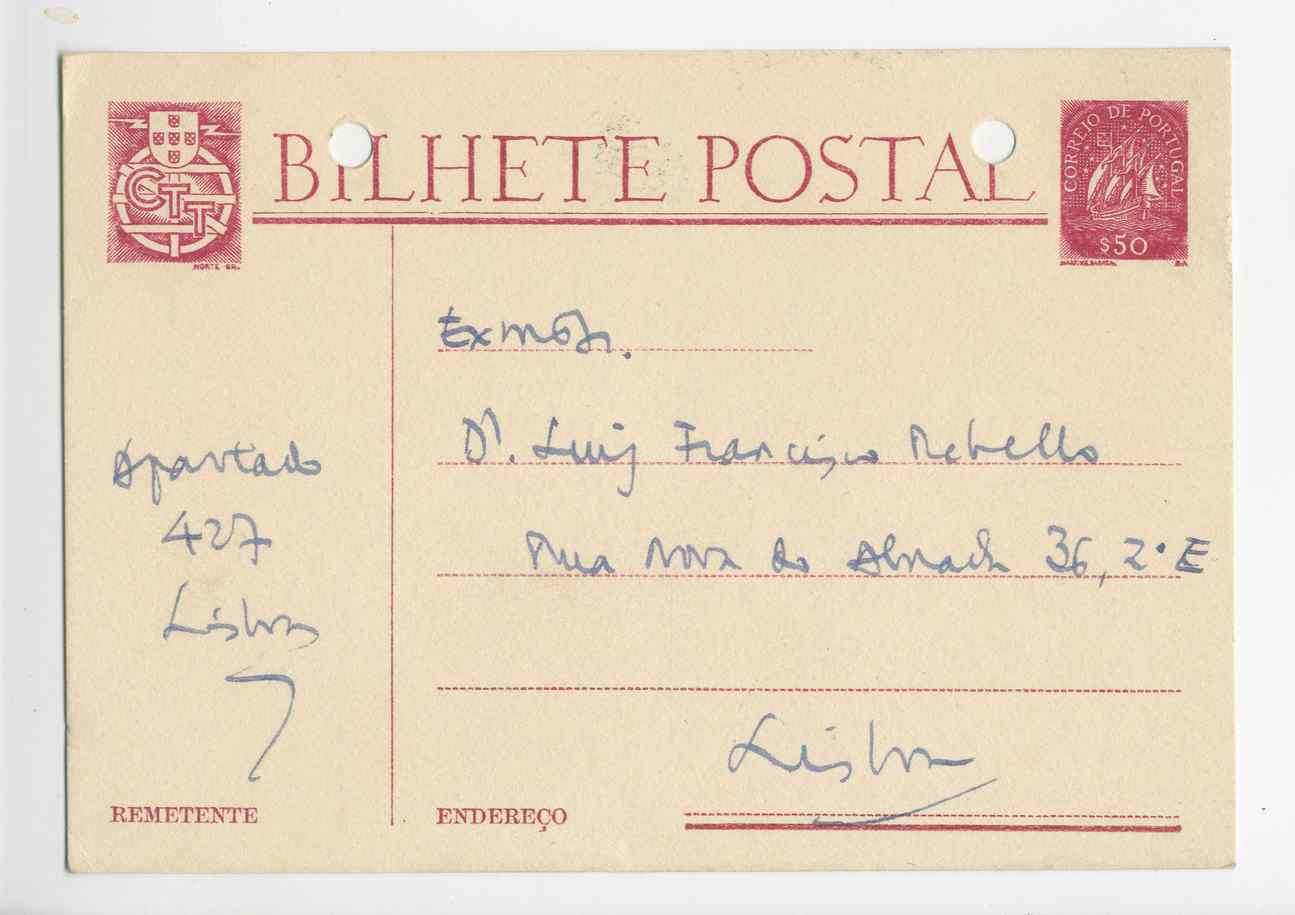 BILHETE POSTAL
CTT
NORTE GR.
CORREIO DE PORTUGAL
$50
Exmo Sr.
Dr. Luiz Francisco Rebello
Rua Nova do Almada 36, 2º E
Lisboa
Apartado
427
Lisboa
REMETENTE
ENDEREÇO